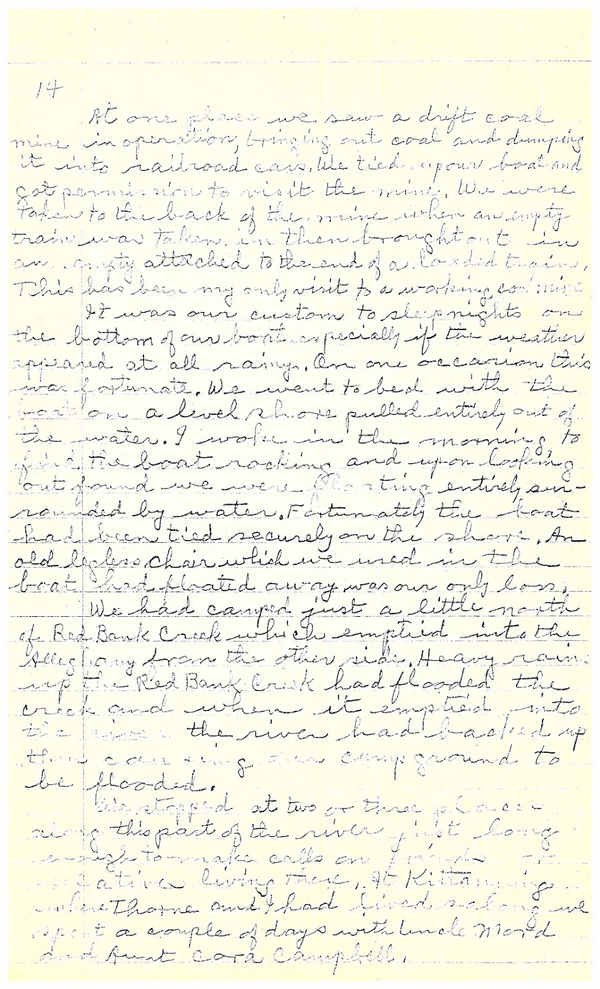 14
At one place we saw a drift coal
mine in operation, bringing out coal and dumping
it into railroad cars. We tied up our boat and
got permission to visit the mine. We were
taken to the back of the mine when an empty
train was taken in then brought out in
an empty attached to the end of a loaded train.
This has been my only visit to a working coal mine
It was our custom to sleep nights on
the bottom of our boat especially if the weather
appeared at all rainy. On one occasion this
was fortunate. We went to bed with the
boat on a level shore pulled entirely out of
the water. I woke in the morning to
find the boat rocking and upon looking
out found we were floating entirely sur-
rounded by water. Fortunately the boat
had been tied securely on the shore. An
old legless chair which we used in the
boat had floated away was our only loss.
We had camped just a little north
of Red Bank Creek which emptied into the
Allegheny from the other side. Heavy rains
up the Red Bank Creek had flooded the
creek and when it emptied into
the river the river had backed up
thus causing our campground to
be flooded.
We stopped at two or three places
along this part of the river just long
enough to make calls on friends or
relatives living there. At Kittanning
where Thorne and I had lived so long we
spent a couple of days with Uncle Mord
and Aunt Cora Campbell.